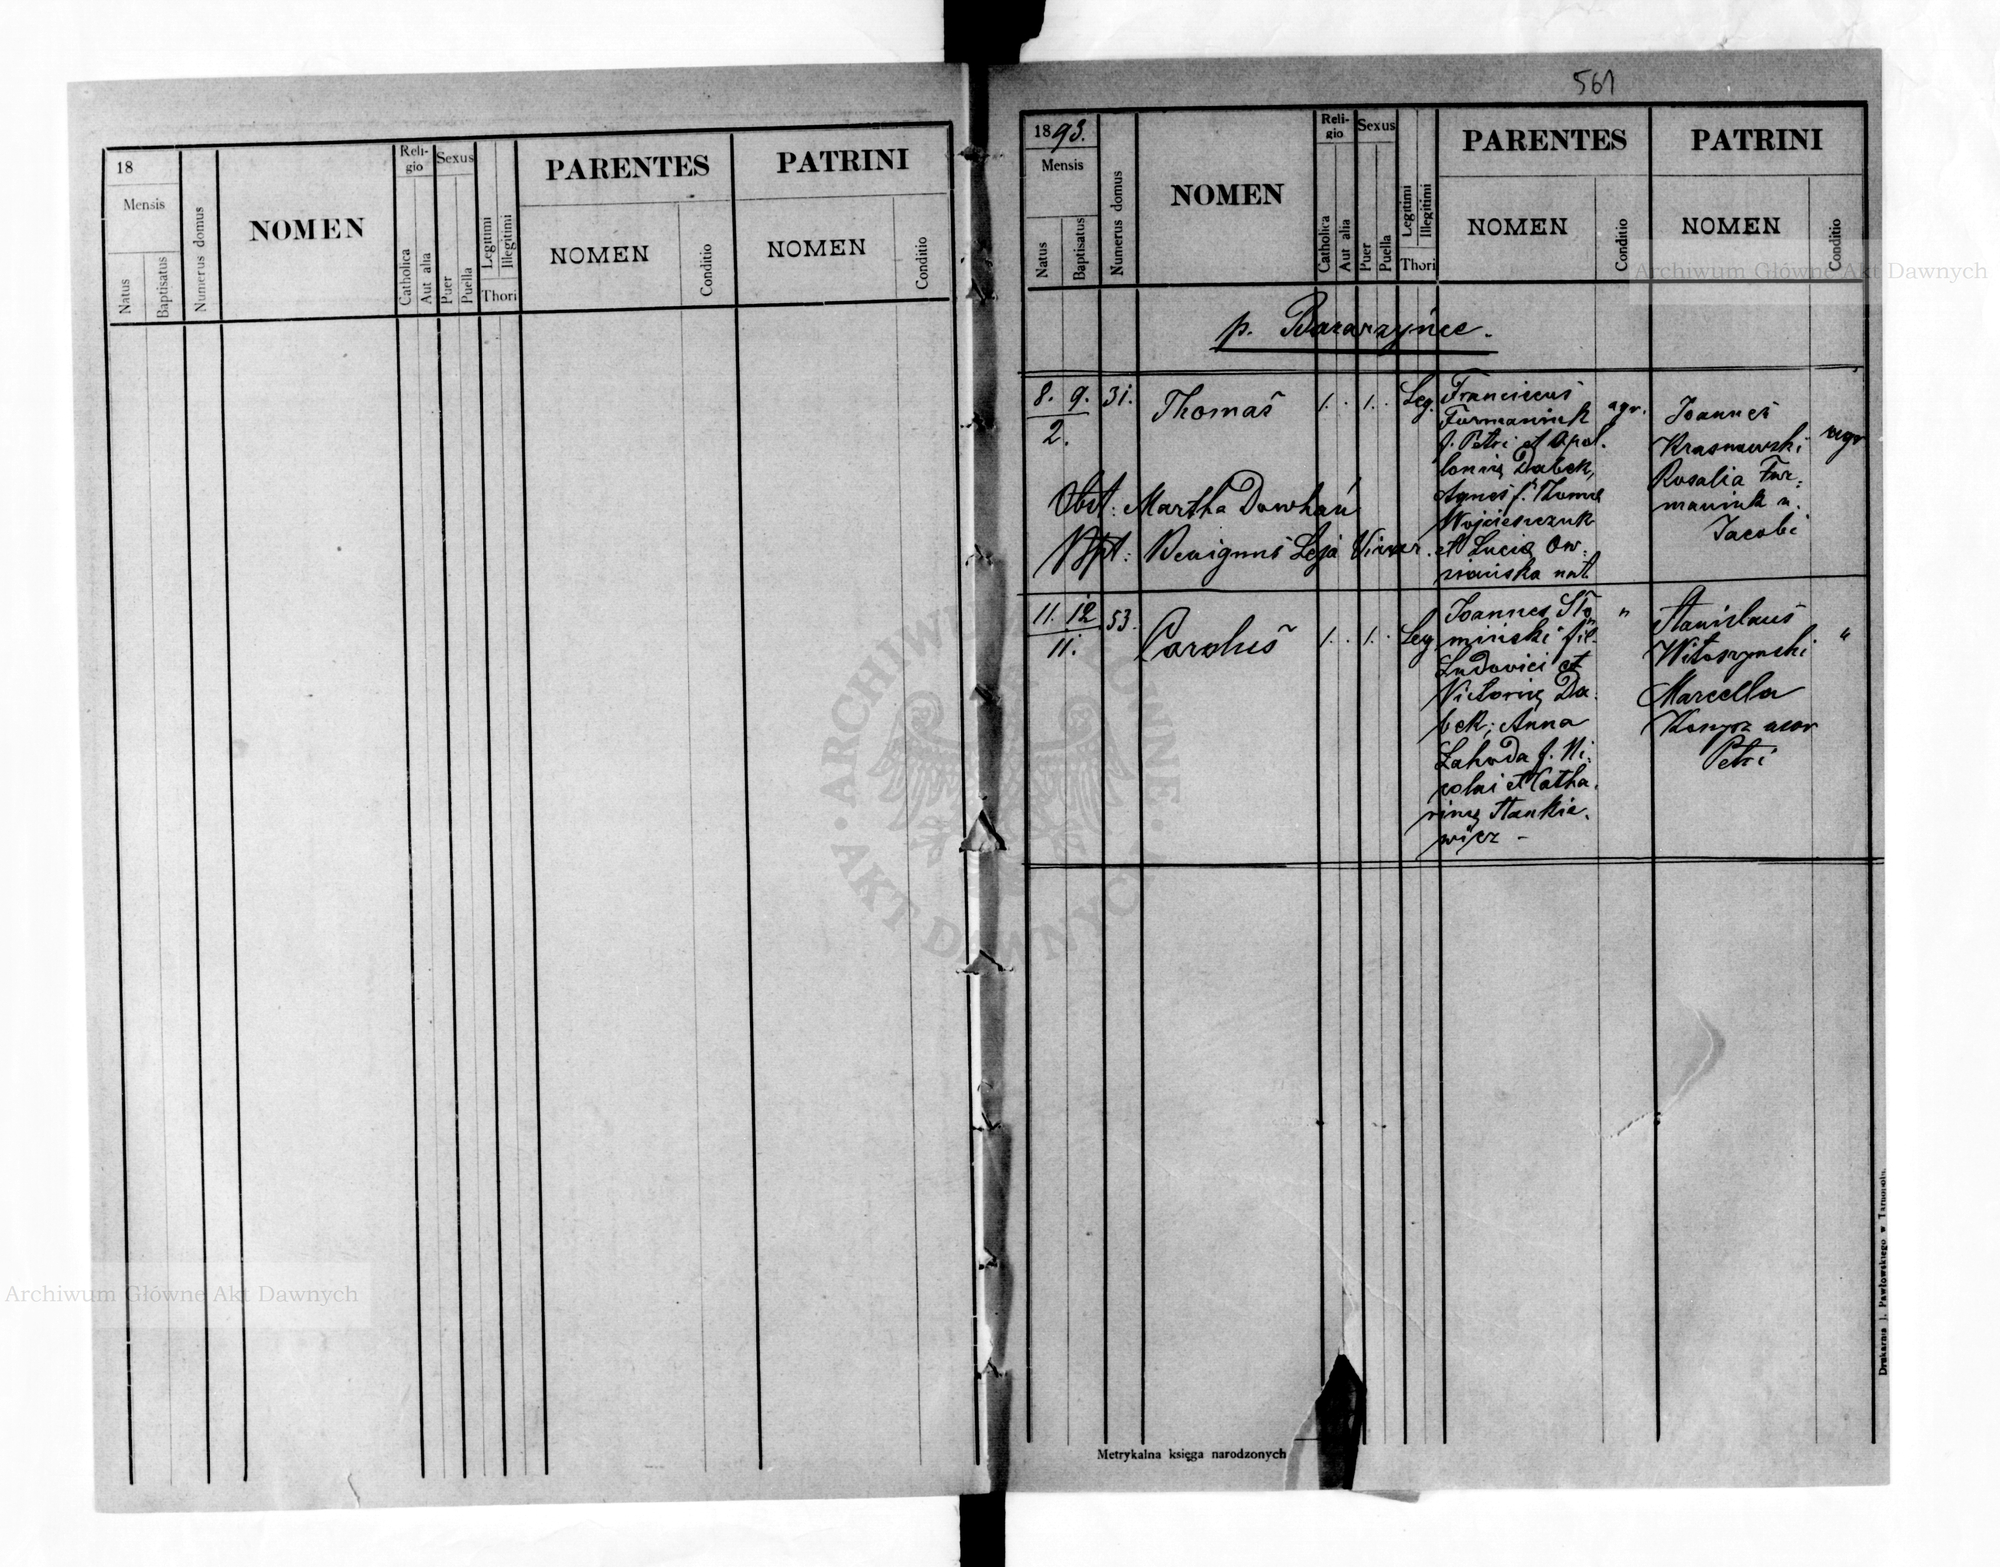 18
Mensis
Natus
Baptisatus
Numerus domus
NOMEN
Reli-
gio
Catholica
Aut alia
Sexus
Puer
Puella
Legitimi
Illegitimi
Thori
PARENTES
NOMEN
Conditio
PATRINI
NOMEN
Conditio
561
1893.
Mensis
Natus
Baptisatus
Numerus domus
NOMEN
Reli-
gio
Catholica
Aut alia
Sexus
Puer
Puella
Legitimi
Illegitimi
Thori
PARENTES
NOMEN
Conditio
PATRINI
NOMEN
Conditio
p. Bazarzyńce.
8. 9. 31. Thomas 1. . 1. . Leg.
2.
Franciscus
Furmaniuk
f. Petri et Apol.
lonię Dąbek,
Agnes f. Thomę
Wojcieszczuk
et Lucię Ow.
siańska nat.
agr.
Joannes
Krasnowski
Rosalia Fur:
maniuk u.
Jacobi
agr
Obst: Martha Dowhań
Bpt: Benignus Leja
11. 12 53. Carolus 1. . 1. . Leg
11.
Joannes Sło
miński fil.
Ludovici et
Victorię Dą.
bek; Anna
Zahoda f. Ni.
colai et Catha.
rinę Stankie.
wicz -
"
Stanislaus
Witoszynski
Marcella
uxor
Petri
"
Metrykalna księga narodzonych
Drukarnia J. Pawłowskiego w Tarnopolu.
Archiwum Główne Akt Dawnych
Archiwum Główne Akt Dawnych
ARCHIWUM GŁÓWNE · AKT DAWNYCH ·